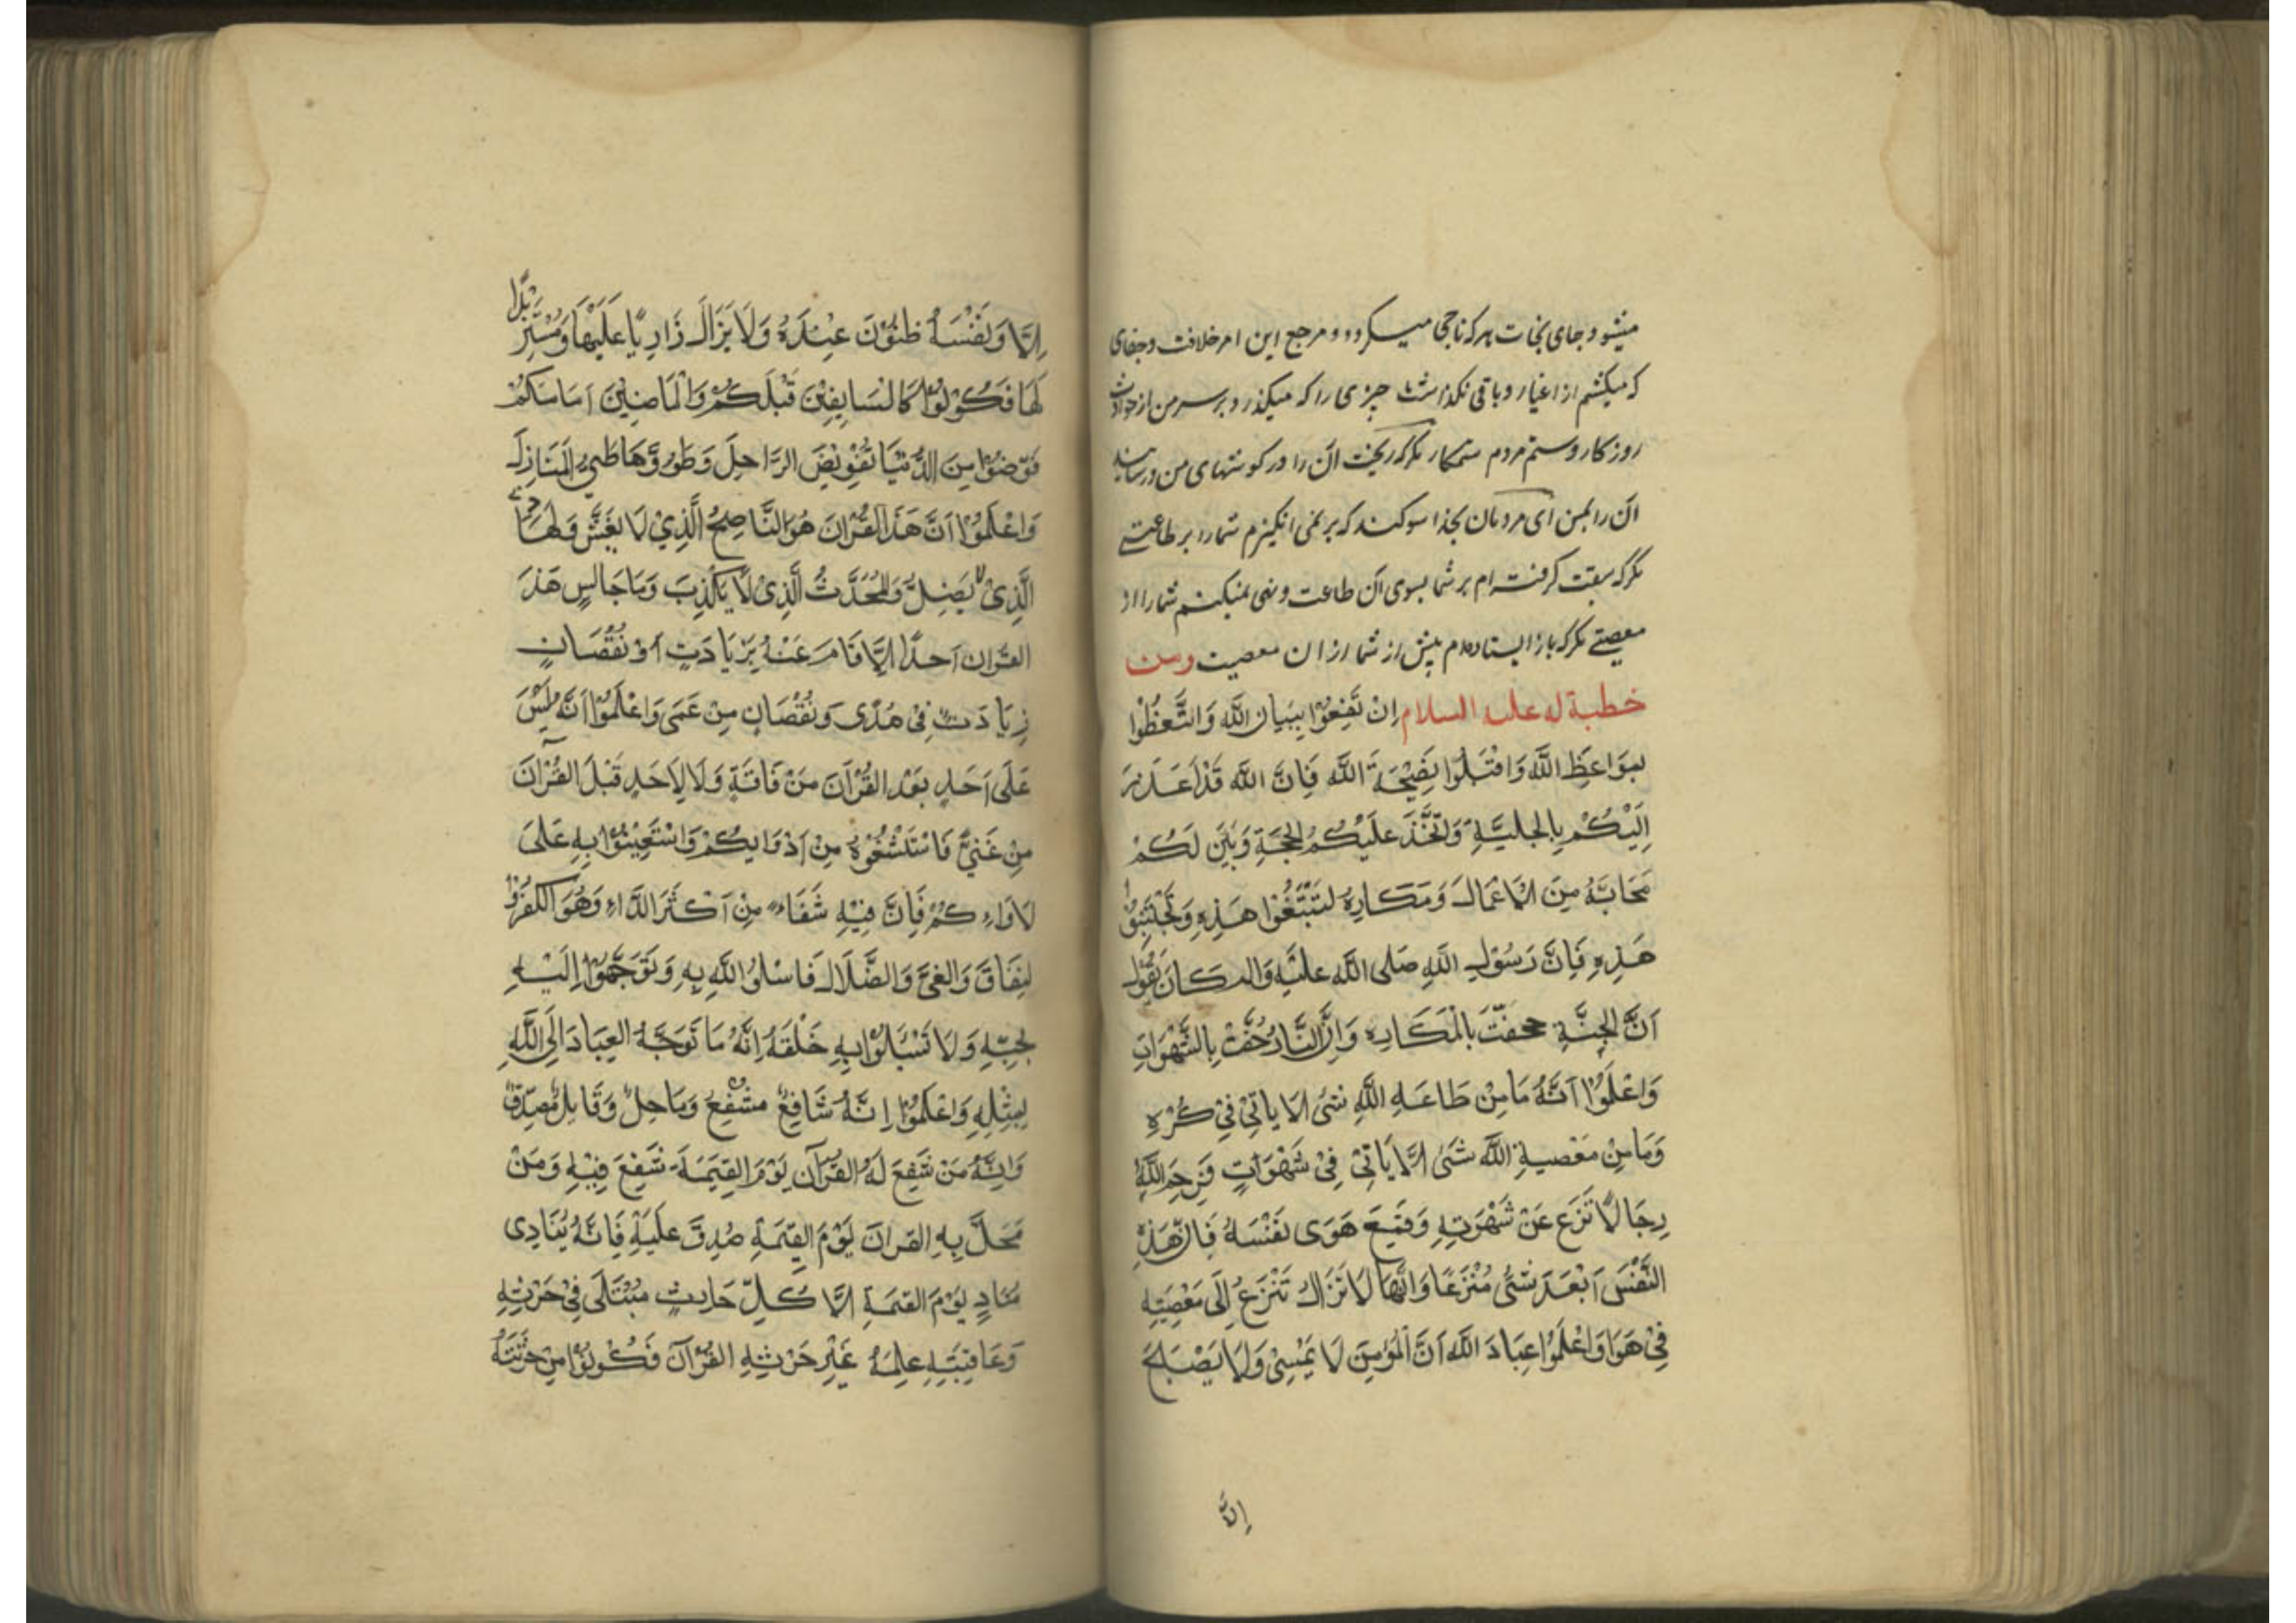 میشود جای نجات هرکه ناجی میکردد و مرجع این امر خلافت و جفای
که میکشم از اغیار و باقی نکذاشت چیزی را که میکذرد بر سر من از حوادث
روزکار و ستم مردم ستمکار مکر که ریخت آن را در کوشهای من و رسانید
آن را بمن ای مردمان بخدا سوکند که بر نمی انکیزم شما را بر طاعتی
مکر که سبقت کرفته ام بر شما بسوی آن طاعت و نهی نمیکنم شما را از
معصیتی مکر که باز ایستاده ام پیش از شما از ان معصیت ومن
خطبة له علیه السلام اِنْتَفِعُوْا بِبَيَانِ اللّٰه وَاتَّعِظُوْا
بمَوَاعِظِ اللّٰه وَاقْبَلُوا نَصِيْحَةَ اللّٰه فَاِنَّ اللّٰه قَدْ اَعْذَرَ
اِلَيْكُمْ بِالجَلِيَّةِ وَاتَّخَذَ عَلَيْكُمُ الحُجَّةِ وَبَيَّنَ لَكُمْ
مَحَابَّهُ مِنَ الاَعْمَالِ وَمَكَارِهُ لتَبْتَغُوْا هَذِهِ وَتَجْتَنِبُوْا
هَذِهِ فَاِنَّ رَسُوْلِ اللّٰهِ صَلی اللّٰه عليْهِ وَاله كَانَ يَقُوْلُ
اَنَّ الجَنَّةِ حَفَّتْ بِالْمَكَارِهِ وَاِنَّ النَّارَ حُفَّتْ بِالشَّهَوَاتِ
وَاعْلَمُوْا اَنَّهُ مَا مِنْ طَاعَةِ اللّٰهِ شئ الا ياتِيْ فِيْ كُرْهٍ
وَمَا مِنْ مَعْصِيةِ اللّٰه شَئ اِلَّا يَاتِیْ فِیْ شَهْوَاتٍ فَرَحِمَ اللّٰهُ
رِجَالًا نَزَعَ عَنْ شَهْوَتِهِ وَقَمَعَ هَوَى نَفْسَهُ فَاِنَّ هَذِهِ
النَّفْسَ اَبْعَدَ شئ مُنْزَعًا وَاِنَّهَا لَا تَزَالُ تَنْزِعُ اِلَى مَعْصِيَةٍ
فِیْ هَوَا وَاعْلَمُوْا عِبَادَ اللّٰه اَنَّ الْمُؤْمِنَ لَا يَمْسِیْ وَلَا يَصْبَحُ
اِلَّا
اِلَّا وَنَفْسَهُ ظنُوْنَ عِنْدَهُ وَلَا يَزَالُ زَارِيًا عَلَيْهَا وَمُسْتَزِيْدًا
لَهَا فَكُوْنُوْا كَالسَابِقِيْنَ قَبْلَكُمْ وَالْمَاضِيْنَ اَمَامَكُمْ
قَوّضُوْا مِنَ الدُّنْيَا تَقْوِيْضَ الرَّاحِلَ وَطَوُوْهَا طَيُ الْمَنَازِلِ
وَاعْلَمُوْا اَنَّ هَذَا القُرْانَ هُوَ النَّاصِحُ الَّذِيْ لَا يَغشّ وَالهَادِی
الَّذِیْ لا يَضِلُّ وَالمُحَدَّثُ الَّذِیْ لَا يَكْذِبَ وَمَا جَالسٍ هَذَ
القُرانِ اَحدًا اِلَّا قَامَ عَنْهُ بِزِيَادَتٍ اَوْ نُقْصَانٍ
زِيَادَتٍ فِیْ هُدًى وَنُقْصَانٍ مِنْ عَمَى وَاعْلَمُوْا اَنَّهُ لَيْسَ
عَلَى اَحَدٍ بَعْد القُرْآنَ مَنْ فَاقَةٍ وَلَا لِاَحَدٍ قَبْلَ القُرْآنَ
مِنْ غَنیً فَاسْتَشْفُوْهُ مِنْ اَدْوَايِكُمْ وَاسْتَعِيْنُوْا بِهِ عَلَى
لَاوَاءِكُمْ فَاِنَّ فِيْهِ شَفَاءٌ مِنْ اَكْثَرَ الدَّاءِ وَهُوَ الكُفْرُ وَ
لنِفَاقَ وَالغیَّ وَالضَّلَالِ فَاسْلُوا اللّٰه بِهِ وَتَوَجَّهُوْا اِلَيْهِ
بُحِبّهِ وَلَا تَسْئَلُوْا بِهِ خَلْقَهُ اِنَّهُ مَا تَوَجَّهَ العِبَادَ اِلَى اللّٰهِ
بِمِثْلِهِ وَاعْلَمُوْا اِنَّهُ شَافِعٌ مشْفِعٌ وَمَاحِلٌ وَقَايِلٌ مُصَدِّقٌ
وَاِنَّهُ مَنْ شَفِعَ لَهُ القُرْآنَ يَوْمَ القِيَمَةَ شَفِعَ فِيْهِ وَمَنْ
مَحَلَّ بِهِ القرانَ يَوْمَ القِيَمَةِ صُدِقَ عَلَيْهِ فَاِنَّهُ يُنَادِی
مُنَادٍ يَوْمَ القيمَةِ اِلَّا كُلّ حَارِثٍ مُبْتَلَى فِیْ حَرْثِهِ
وَعَاقِبَةِ عِلمَهُ غَيْرِ حَرْثِهِ القُرْآنَ فَكُوْنُوْا مِنْ حَرْثَتَهُ